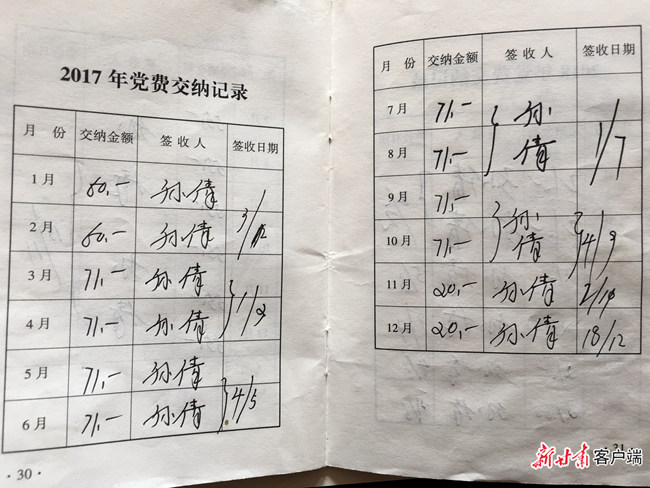 2017 年党费交纳记录
月 份 交纳金额 签 收 人 签收日期
1 月 60,- 孙倩
2 月 60,- 孙倩
3 月 71,- 孙倩
4 月 71,- 孙倩
5 月 71,- 孙倩
6 月 71,- 孙倩 4/5
· 30 ·
月 份 交纳金额 签 收 人 签收日期
7 月 71,- 孙
8 月 71,- 倩 1/7
9 月 71,- 孙
10 月 71,- 倩 4/9
11 月 20,- 孙倩
12 月 20,- 孙倩 18/12
新甘肃客户端